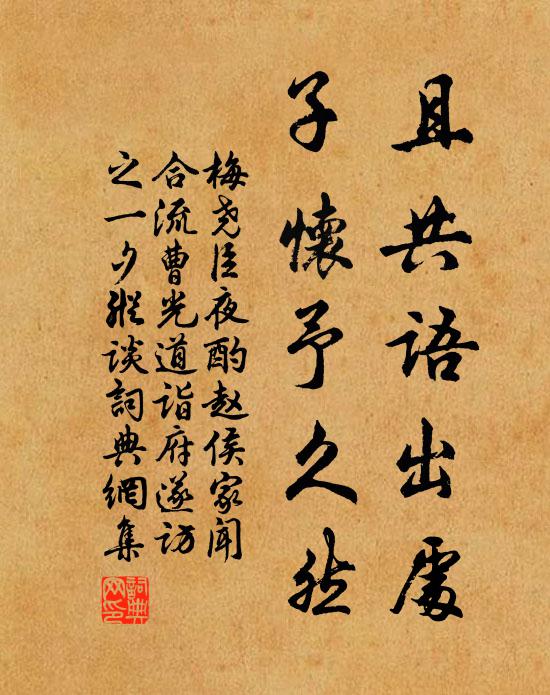 且共語出處
子懷予久然
梅堯臣夜酌赵侯家闻
合流曹光道詣府遂访
之一夕縱谈詞典網集
詞典网印